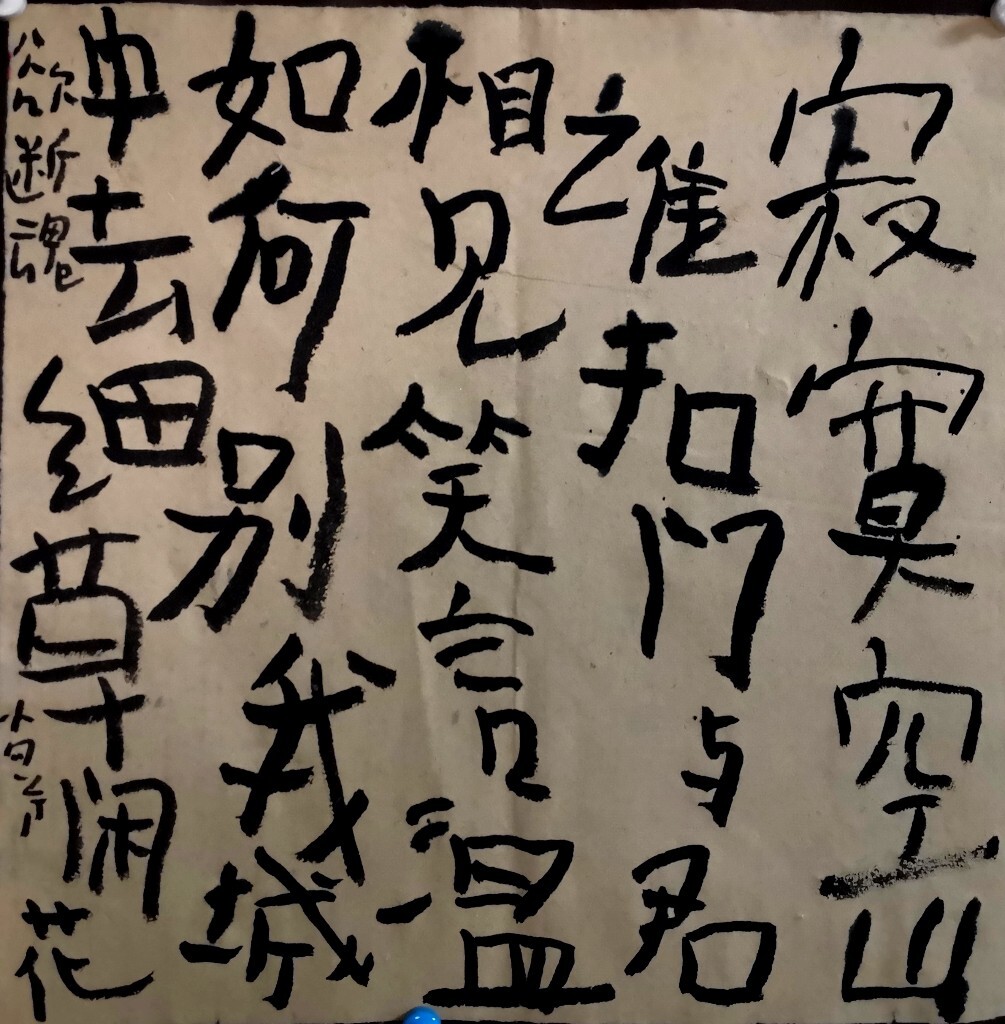 寂寞空山
谁扣门与君
相见笑言温
如何别我城
中去细草闲花
欲断魂